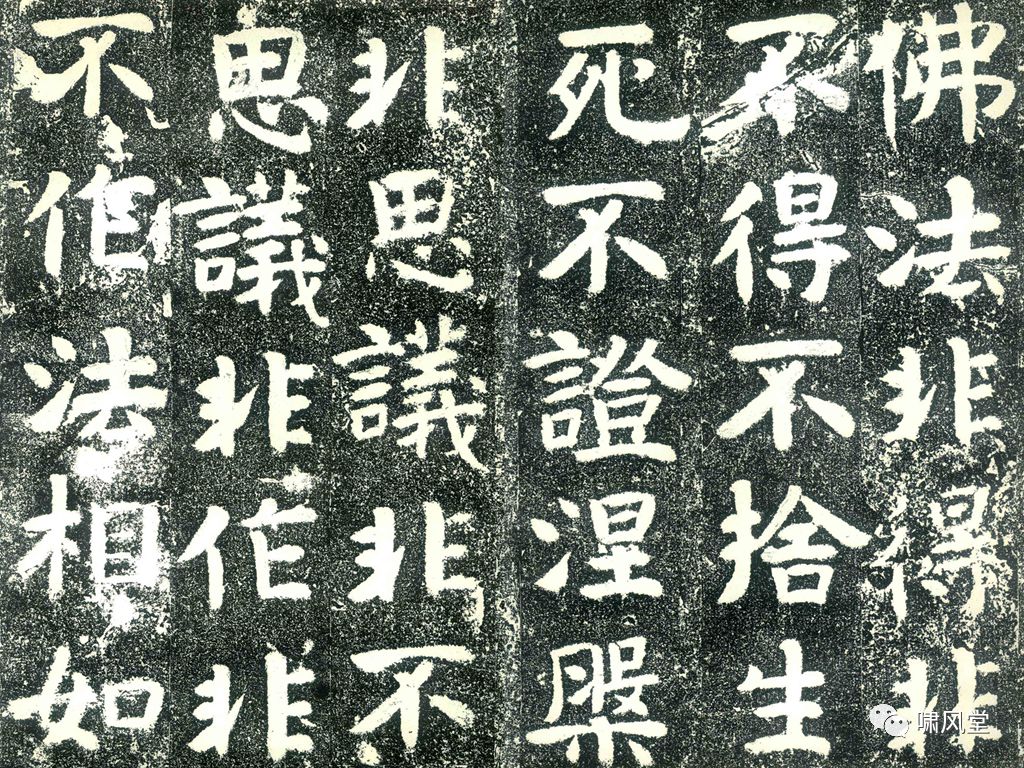 佛法非得非
不得不捨生
死不證涅槃
非思議非不
思議非作非
不作法相如
啸风堂